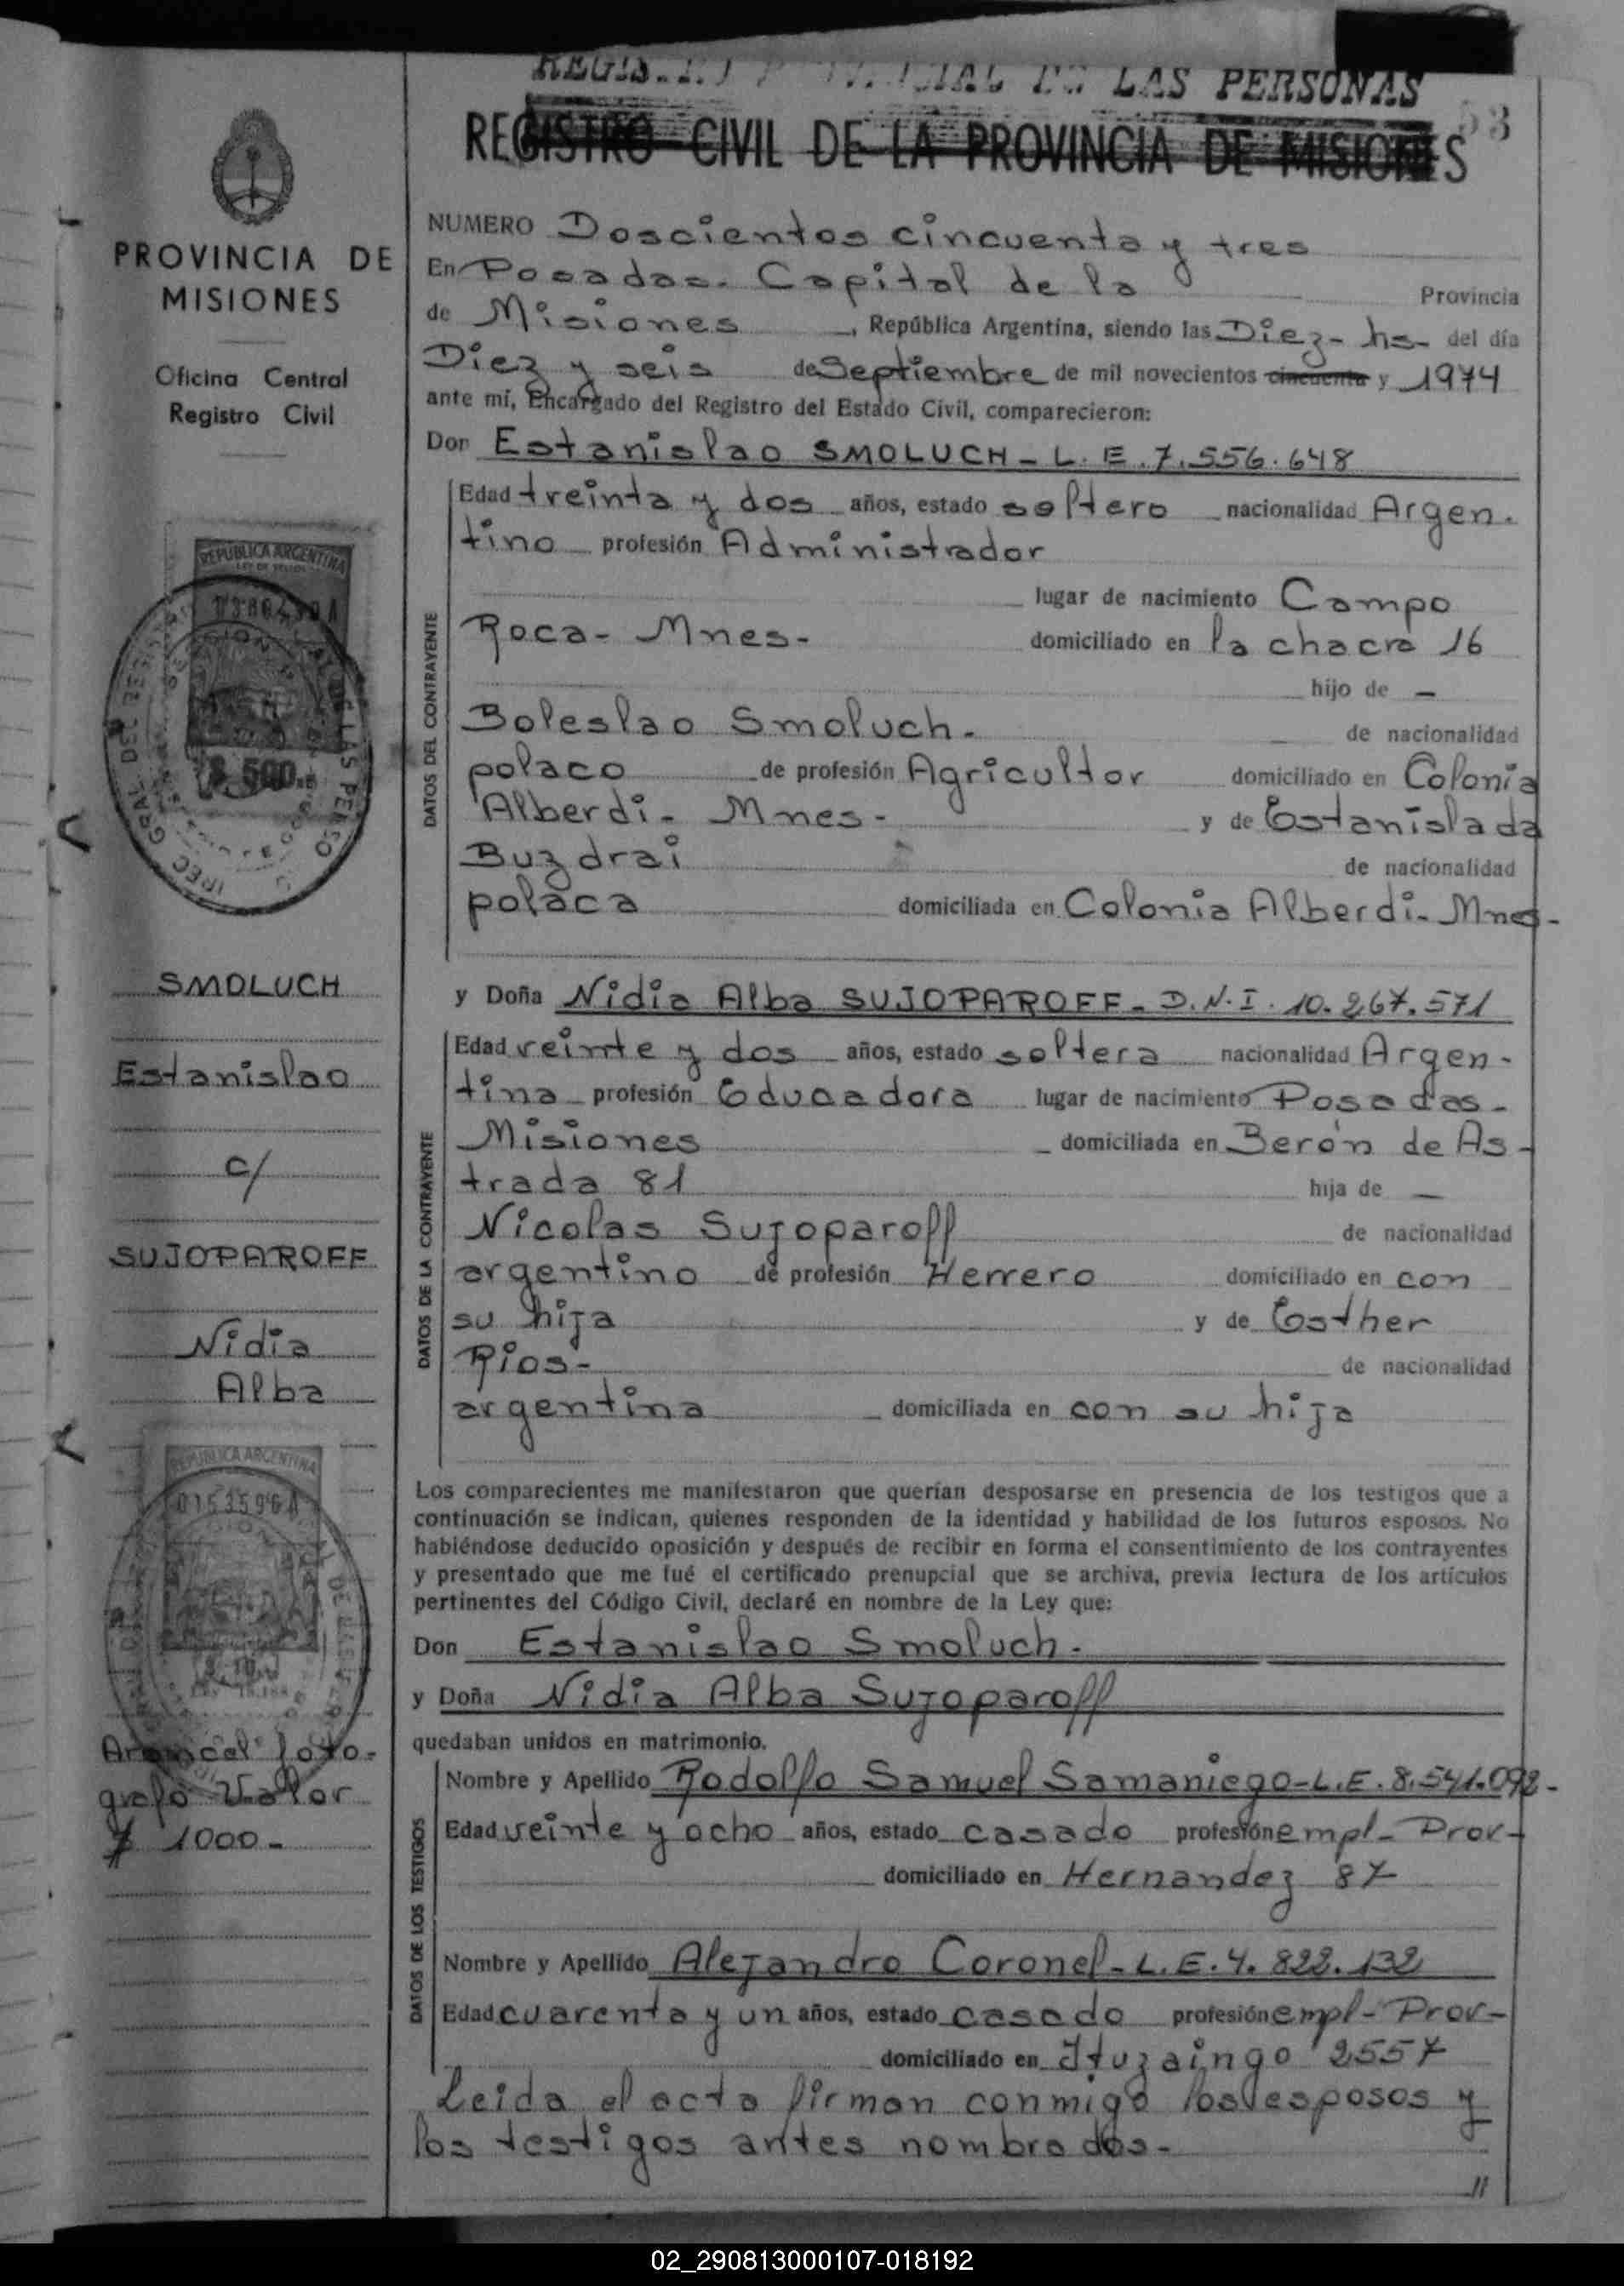 REGISTRO PROVINCIAL DE LAS PERSONAS
REGISTRO CIVIL DE LA PROVINCIA DE MISIONES
53
PROVINCIA DE
MISIONES
Oficina Central
Registro Civil
REPUBLICA ARGENTINA
LEY DE SELLOS
$ 500.-
SMOLUCH
Estanislao
c/
SUJOPAROFF
Nidia
Alba
REPUBLICA ARGENTINA
01535996A
Arancel foto-
grafo Valor
$ 1000-
NUMERO Doscientos cincuenta y tres
En Posadas. Capital de la Provincia
de Misiones, República Argentina, siendo las Diez- hs- del día
Diez y seis de Septiembre de mil novecientos cincuenta y 1974
ante mí, Encargado del Registro del Estado Civil, comparecieron:
Don Estanislao SMOLUCH - L. E. 7.556.648
DATOS DEL CONTRAYENTE
Edad treinta y dos años, estado soltero nacionalidad Argen.
tino profesión Administrador
lugar de nacimiento Campo
Roca- Mnes- domiciliado en la chacra 16
hijo de -
Boleslao Smoluch. de nacionalidad
polaco de profesión Agricultor domiciliado en Colonia
Alberdi- Mnes- y de Estanislada
Buzdrai de nacionalidad
polaca domiciliada en Colonia Alberdi- Mnes-
y Doña Nidia Alba SUJOPAROFF - D.N.I. 10.267.571
DATOS DE LA CONTRAYENTE
Edad veinte y dos años, estado soltera nacionalidad Argen-
tina profesión Educadora lugar de nacimiento Posadas-
Misiones domiciliada en Berón de As-
trada 81 hija de -
Nicolas Sujoparoff de nacionalidad
argentino de profesión Herrero domiciliado en con
su hija y de Esther
Rios- de nacionalidad
argentina domiciliada en con su hija
Los comparecientes me manifestaron que querían desposarse en presencia de los testigos que a
continuación se indican, quienes responden de la identidad y habilidad de los futuros esposos. No
habiéndose deducido oposición y después de recibir en forma el consentimiento de los contrayentes
y presentado que me fué el certificado prenupcial que se archiva, previa lectura de los artículos
pertinentes del Código Civil, declaré en nombre de la Ley que:
Don Estanislao Smoluch.
y Doña Nidia Alba Sujoparoff
quedaban unidos en matrimonio.
DATOS DE LOS TESTIGOS
Nombre y Apellido Rodolfo Samuel Samaniego-L.E. 8.541.092-
Edad veinte y ocho años, estado casado profesión empl- Prov-
domiciliado en Hernandez 87
Nombre y Apellido Alejandro Coronel- L.E. 4. 822.132
Edad cuarenta y un años, estado casado profesión empl- Prov-
domiciliado en Ituzaingo 2557
Leida el acta firman conmigo los esposos y
los testigos antes nombrados-
//
02_290813000107-018192